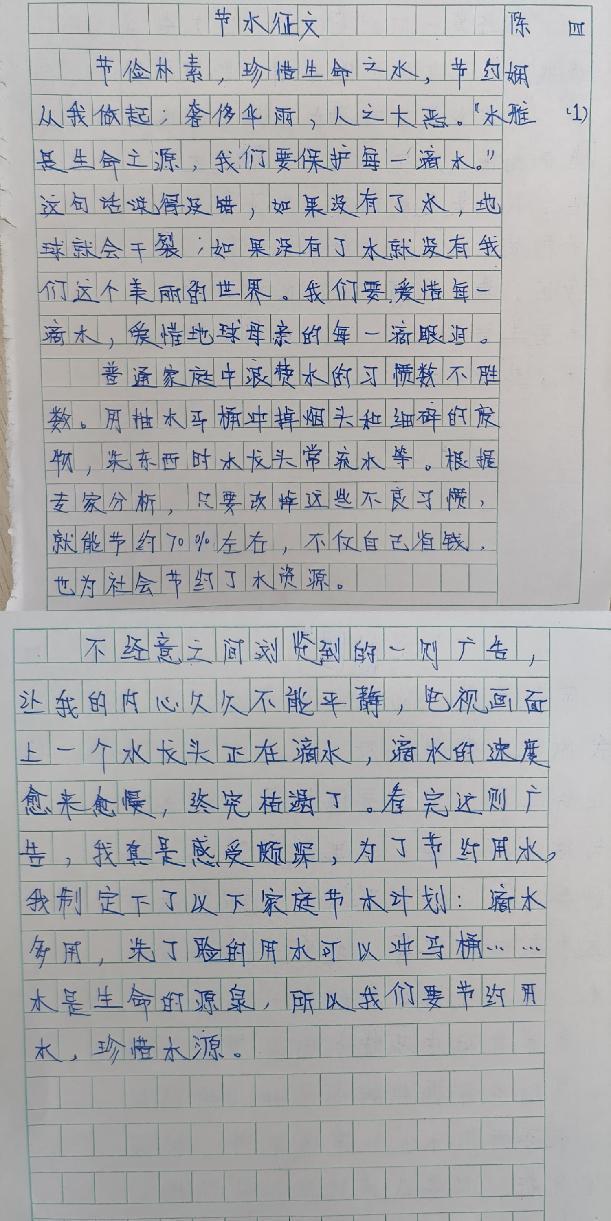 节水征文
陈娴雅
四(1)
节俭朴素，珍惜生命之水，节约
从我做起；奢侈华丽，人之大恶。“水
是生命之源，我们要保护每一滴水。”
这句话说得没错，如果没有了水，地
球就会干裂；如果没有了水就没有我
们这个美丽的世界。我们要爱惜每一
滴水，爱惜地球母亲的每一滴眼泪。
普通家庭中浪费水的习惯数不胜
数。用抽水马桶冲掉烟头和细碎的废
物，洗东西时水龙头常流水等。根据
专家分析，只要改掉这些不良习惯，
就能节约70%左右，不仅自己省钱，
也为社会节约了水资源。
不经意之间浏览到的一则广告，
让我的内心久久不能平静，电视画面
上一个水龙头正在滴水，滴水的速度
愈来愈慢，终究枯竭了。看完这则广
告，我真是感受颇深，为了节约用水，
我制定下了以下家庭节水计划：滴水
多用，洗了脸的用水可以冲马桶……
水是生命的源泉，所以我们要节约用
水，珍惜水源。